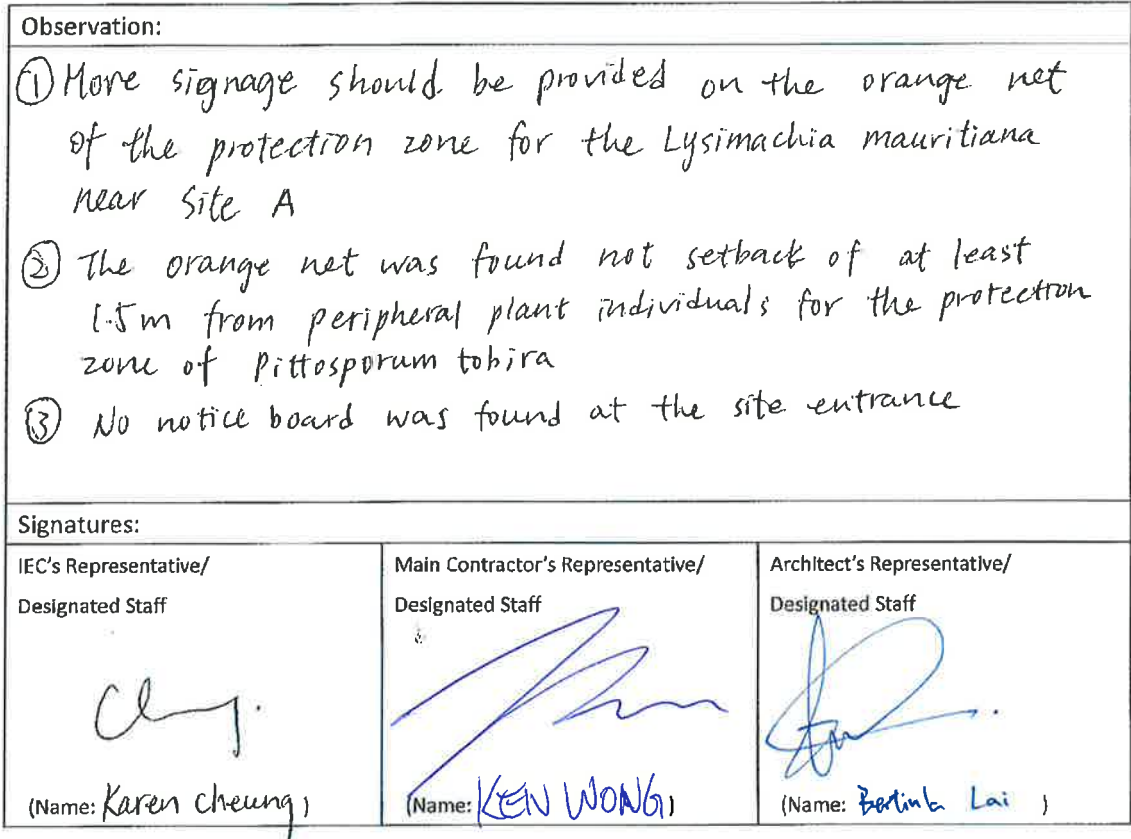 Observation:
① More signage should be provided on the orange net
of the protection zone for the Lysimachia mauritiana
near Site A
② The orange net was found not setback of at least
1.5m from peripheral plant individuals for the protection
zone of Pittosporum tobira
③ No notice board was found at the site entrance
Signatures:
IEC's Representative/
Designated Staff
(Name: Karen Cheung)
Main Contractor's Representative/
Designated Staff
(Name: KEN WONG)
Architect's Representative/
Designated Staff
(Name: Lai )